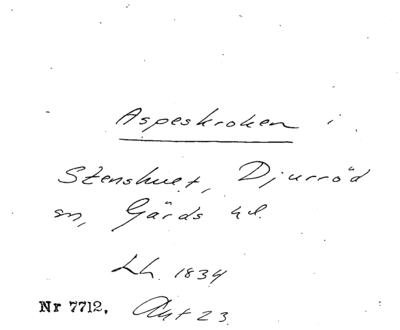 Aspeskroken i
Stenshuet, Djurröd
sn, Gärds hd.
Lh. 1834
Nr 7712. Akt 23